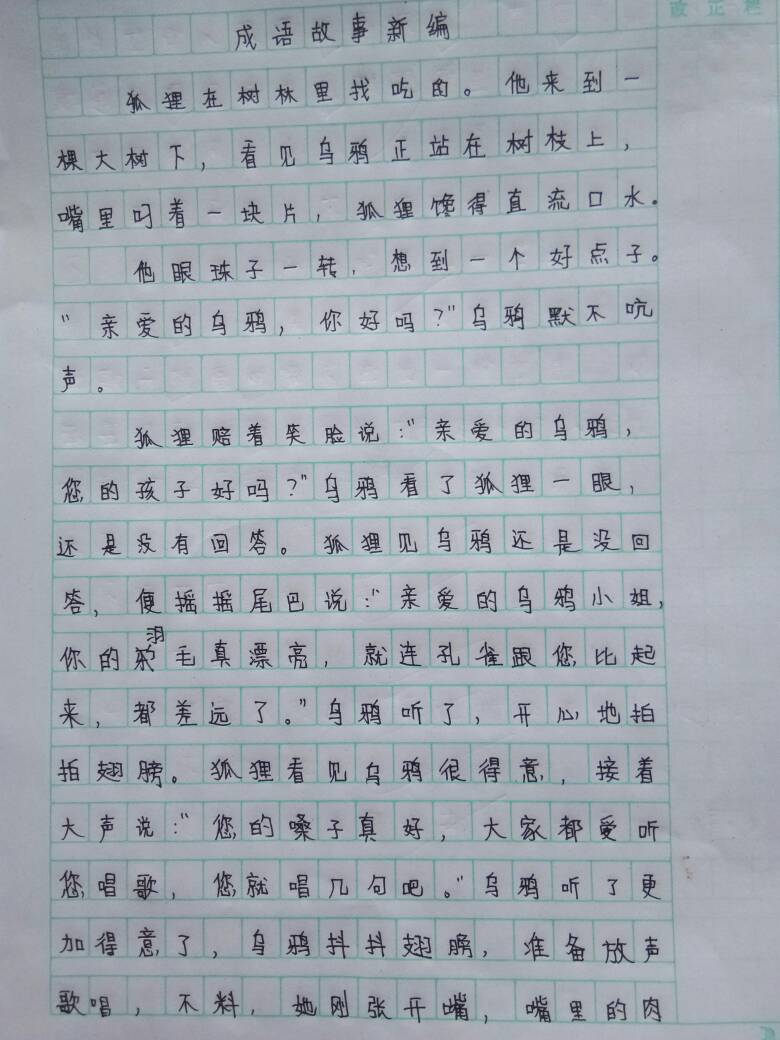 改正栏
成语故事新编
狐狸在树林里找吃的。他来到一
棵大树下，看见乌鸦正站在树枝上，
嘴里叼着一块片，狐狸馋得直流口水。
他眼珠子一转，想到一个好点子。
“亲爱的乌鸦，你好吗？”乌鸦默不吭
声。
狐狸赔着笑脸说：“亲爱的乌鸦，
您的孩子好吗？”乌鸦看了狐狸一眼，
还是没有回答。狐狸见乌鸦还是没回
答，便摇摇尾巴说：“亲爱的乌鸦小姐，
你的羽毛真漂亮，就连孔雀跟您比起
来，都差远了。”乌鸦听了，开心地拍
拍翅膀。狐狸看见乌鸦很得意，接着
大声说：“您的嗓子真好，大家都爱听
您唱歌，您就唱几句吧。”乌鸦听了更
加得意了，乌鸦抖抖翅膀，准备放声
歌唱，不料，她刚张开嘴，嘴里的肉